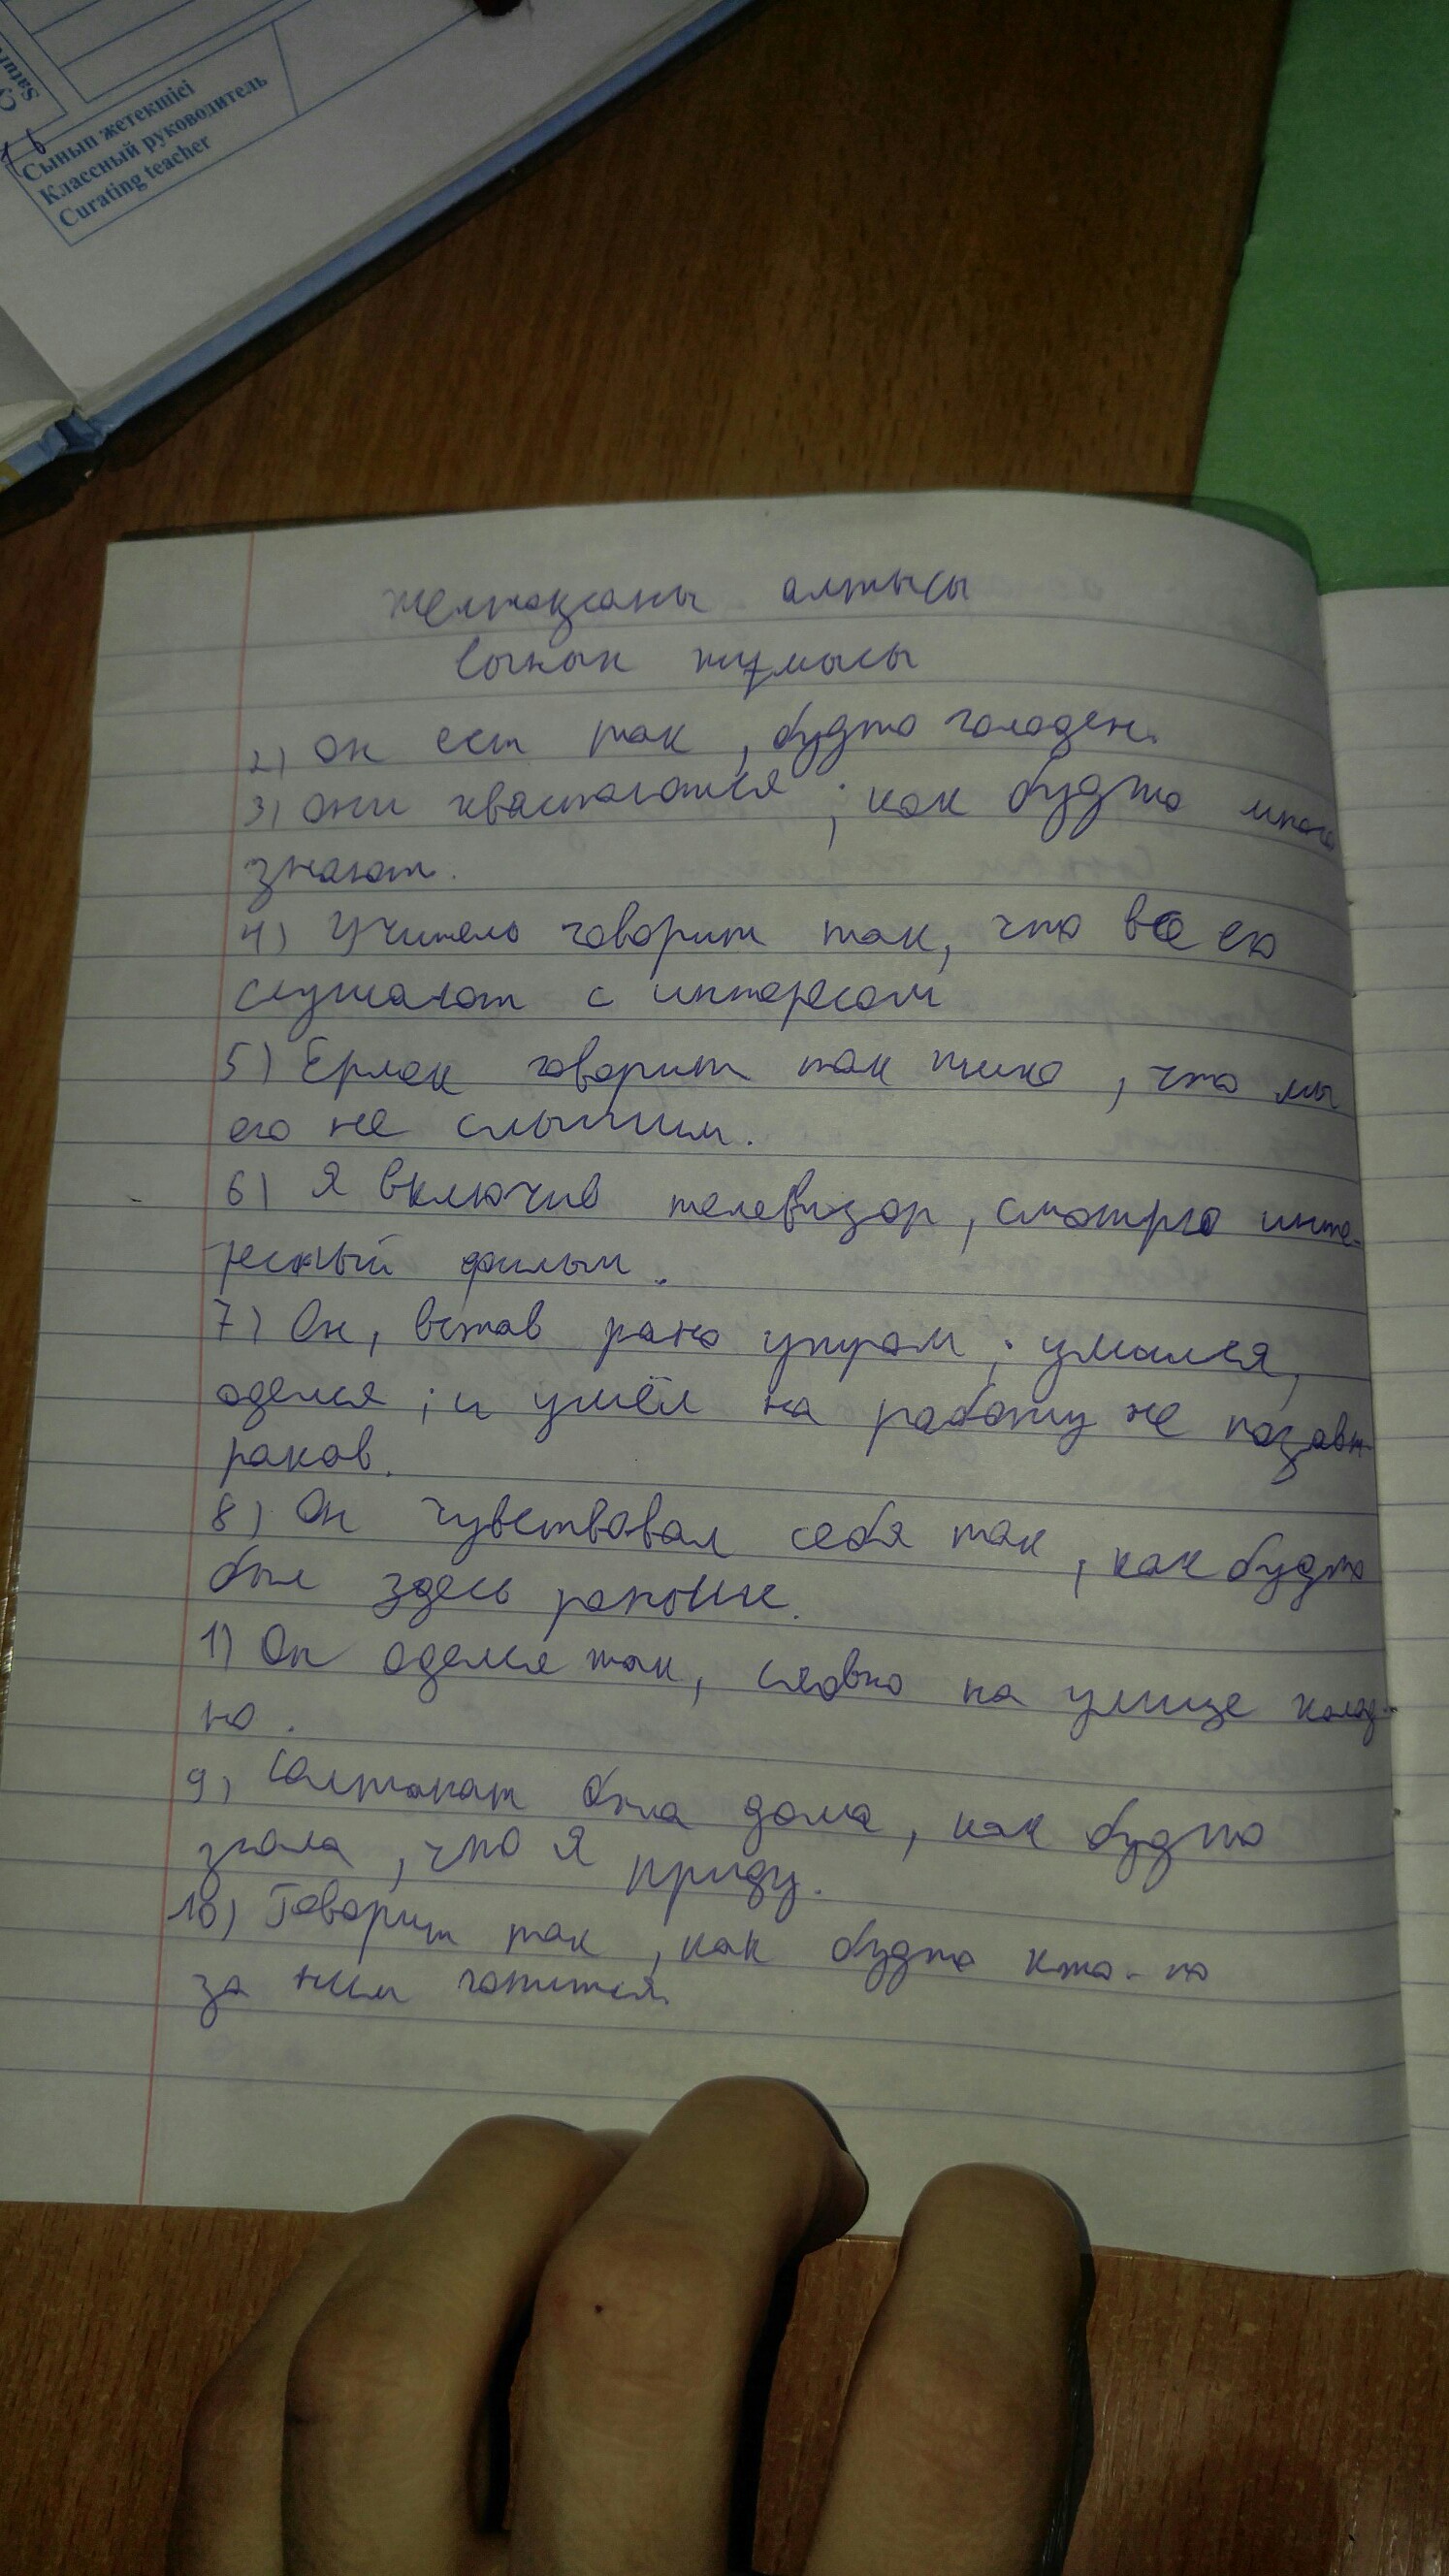 Сынып жетекшісі
Классный руководитель
Curating teacher
Желтоқсаны алтысы
Сынып жұмысы
2) Он ест так, будто голоден.
3) Они хвастаются, как будто много
знают.
4) Учитель говорит так, что все его
слушают с интересом
5) Ерлан говорит так тихо, что мы
его не слышим.
6) Я включив телевизор, смотрю инте-
ресный фильм.
7) Он, встав рано утром, умылся,
оделся, и ушёл на работу не позавт-
ракав.
8) Он чувствовал себя так, как будто
был здесь раньше.
1) Он оделся так, словно на улице холод-
но.
9) Салтанат была дома, как будто
знала, что я приду.
10) Говорит так, как будто кто-то
за ним гонится.